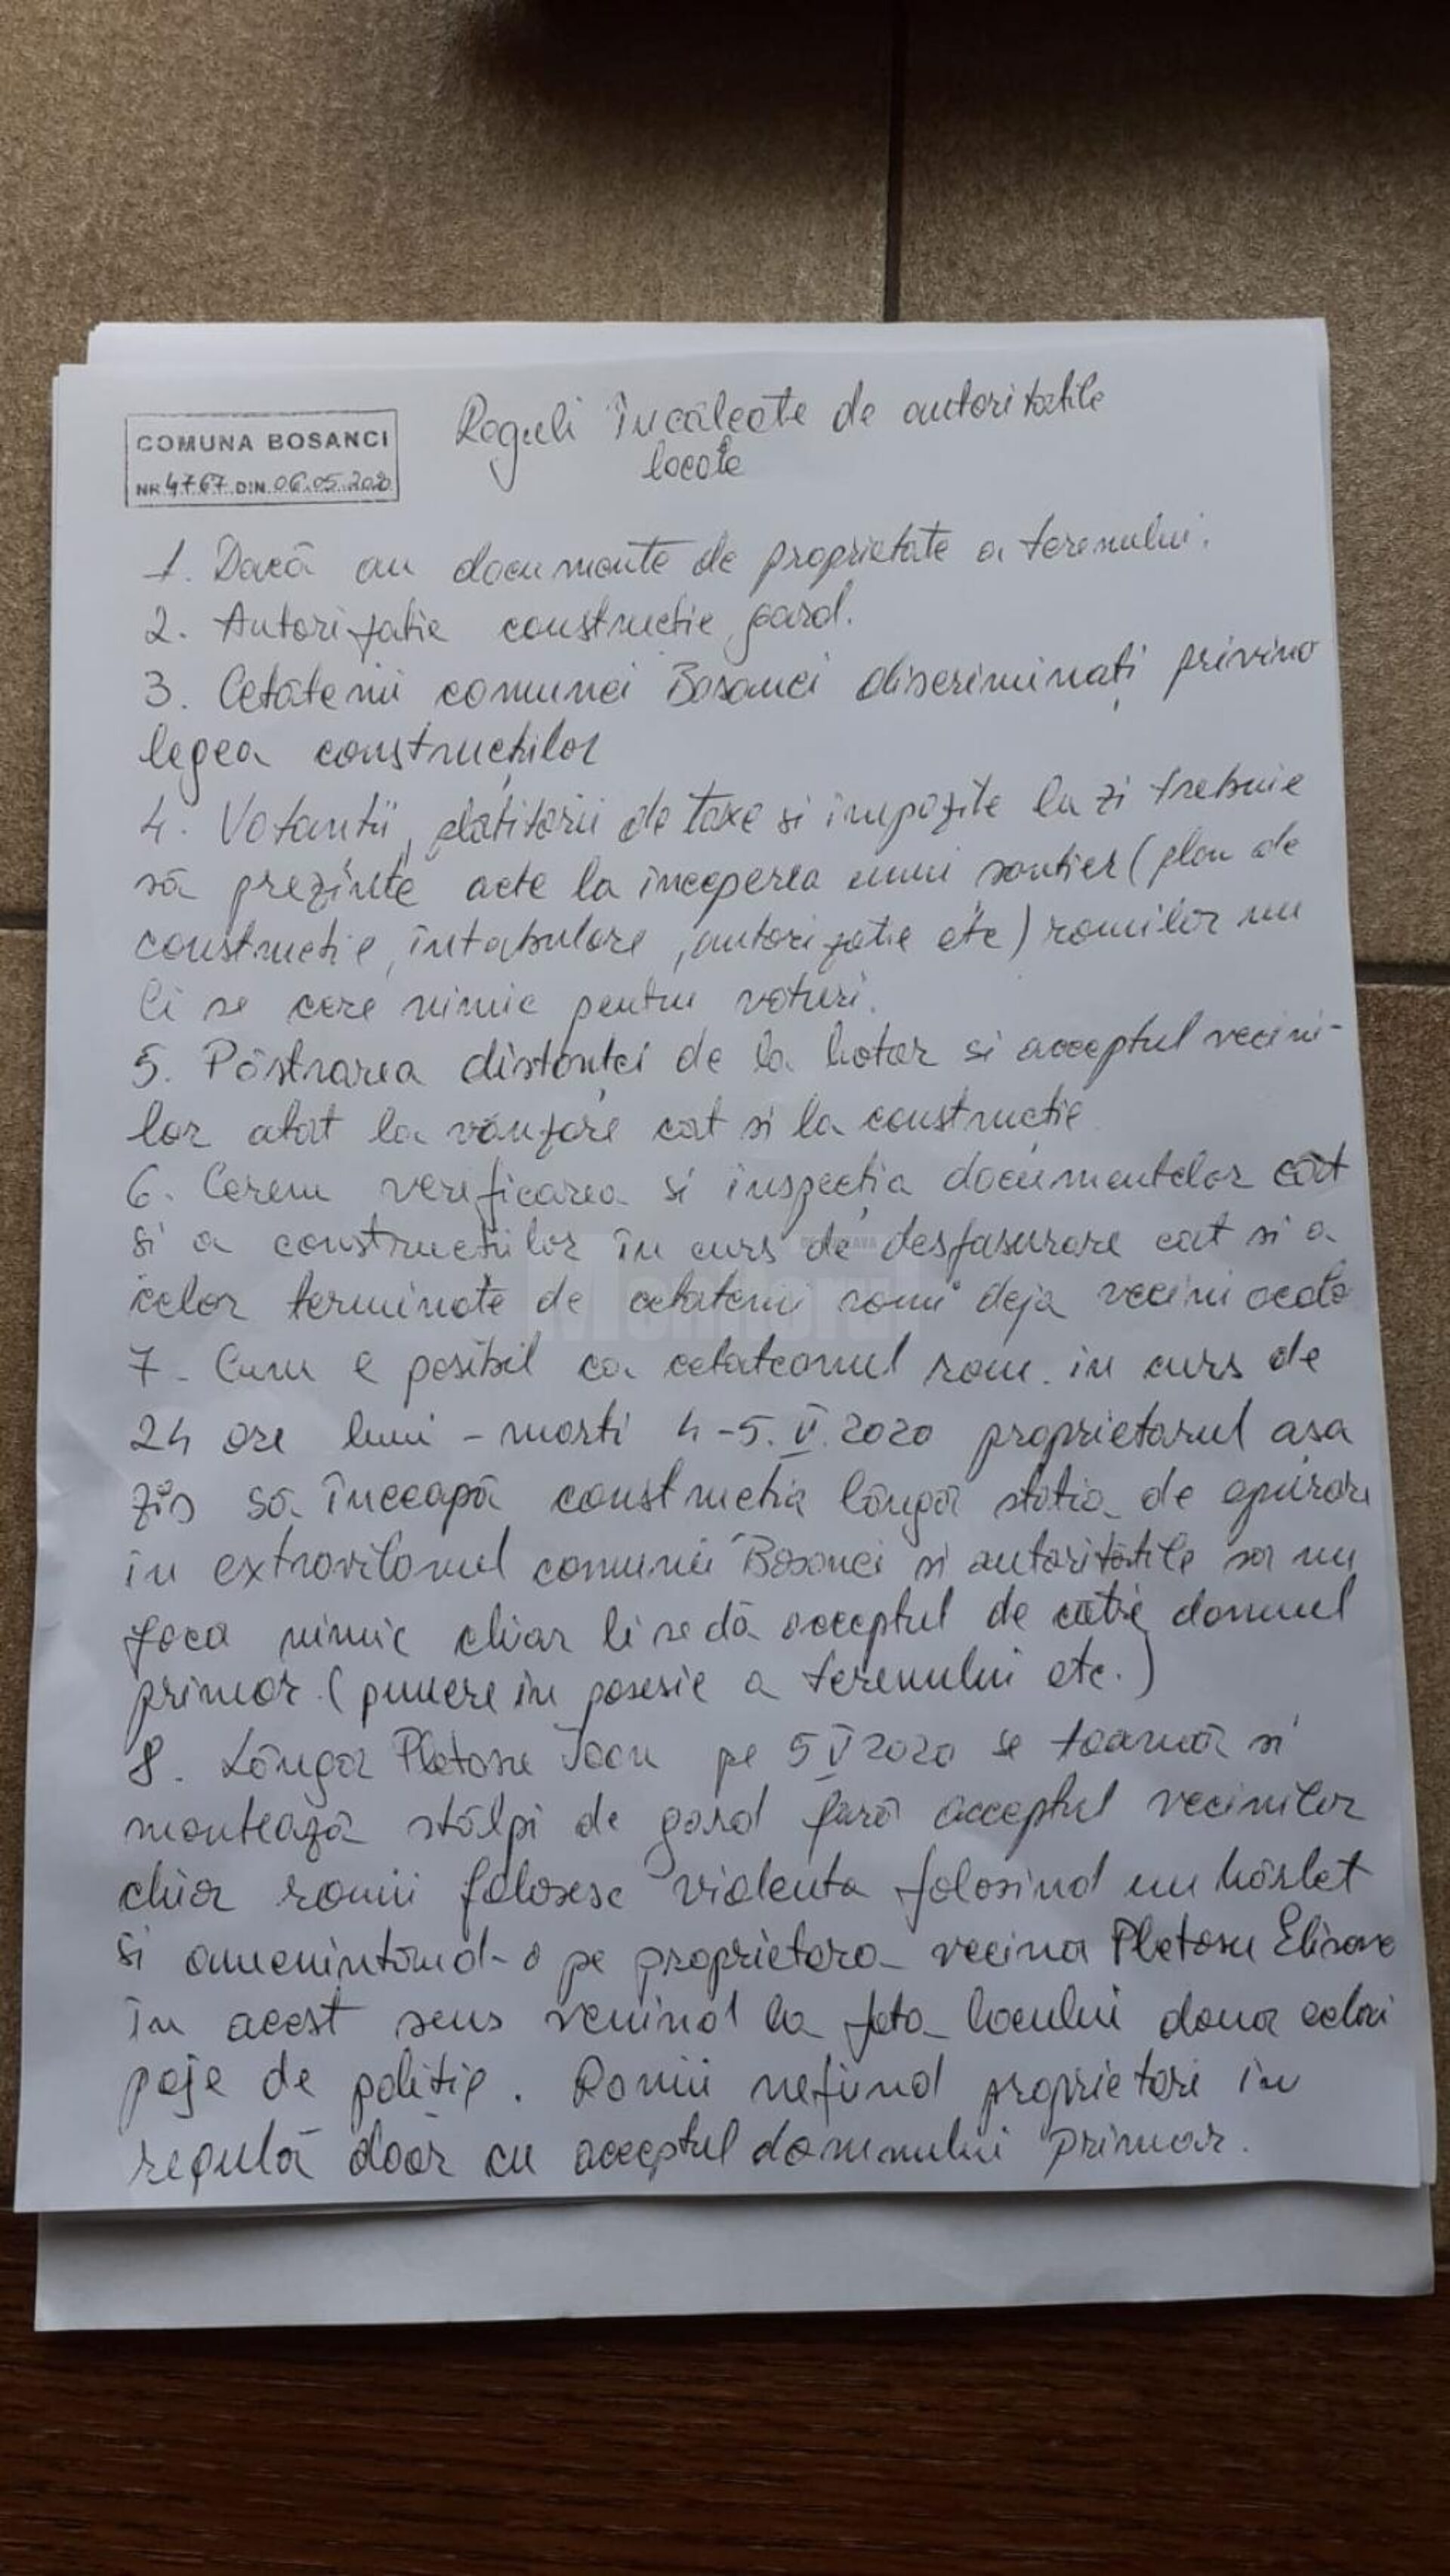 Reguli încălcate de autoritatile
locale
COMUNA BOSANCI
NR 4767 DIN 06.05.2020
1. Dacă au documente de proprietate a terenului.
2. Autorizatie constructie gard.
3. Cetătenii comunei Bosanci discriminați privind
legea construcțiilor
4. Votantii, plătitorii de taxe si impozite la zi trebuie
să prezinte acte la inceperea unui santier (plan de
constructie, întabulare, autorizatie etc) romilor nu
li se cere nimic pentru voturi.
5. Păstrarea distanței de la hotar si acceptul vecini-
lor atat la vânzare cat si la constructie
6. Cerem verificarea si inspecția documentelor cât
si a construcțiilor în curs de desfasurare cat si a
celor terminate de cetateni romi deja vecini acolo
7. Cum e posibil ca cetateanul rom in curs de
24 ore luni - marti 4-5.V.2020 proprietarul asa
zis să înceapă constructia lângă statia de epurare
in extravilanul comunei Bosanci si autoritătile sa nu
faca nimic chiar li se dă acceptul de catre domnul
primar. (punere in posesie a terenului etc.)
8. Lângă Pletosu Ioan pe 5 V 2020 se toarnă si
montează stâlpi de gard fară acceptul vecinilor
chiar romii folosesc violenta folosind un hârlet
si amenintând-o pe proprietara vecina Pletosu
în acest sens venind la fata locului doua
de politie. Romii nefiind proprietari in
regulă doar cu acceptul domnului primar.
Monitorul